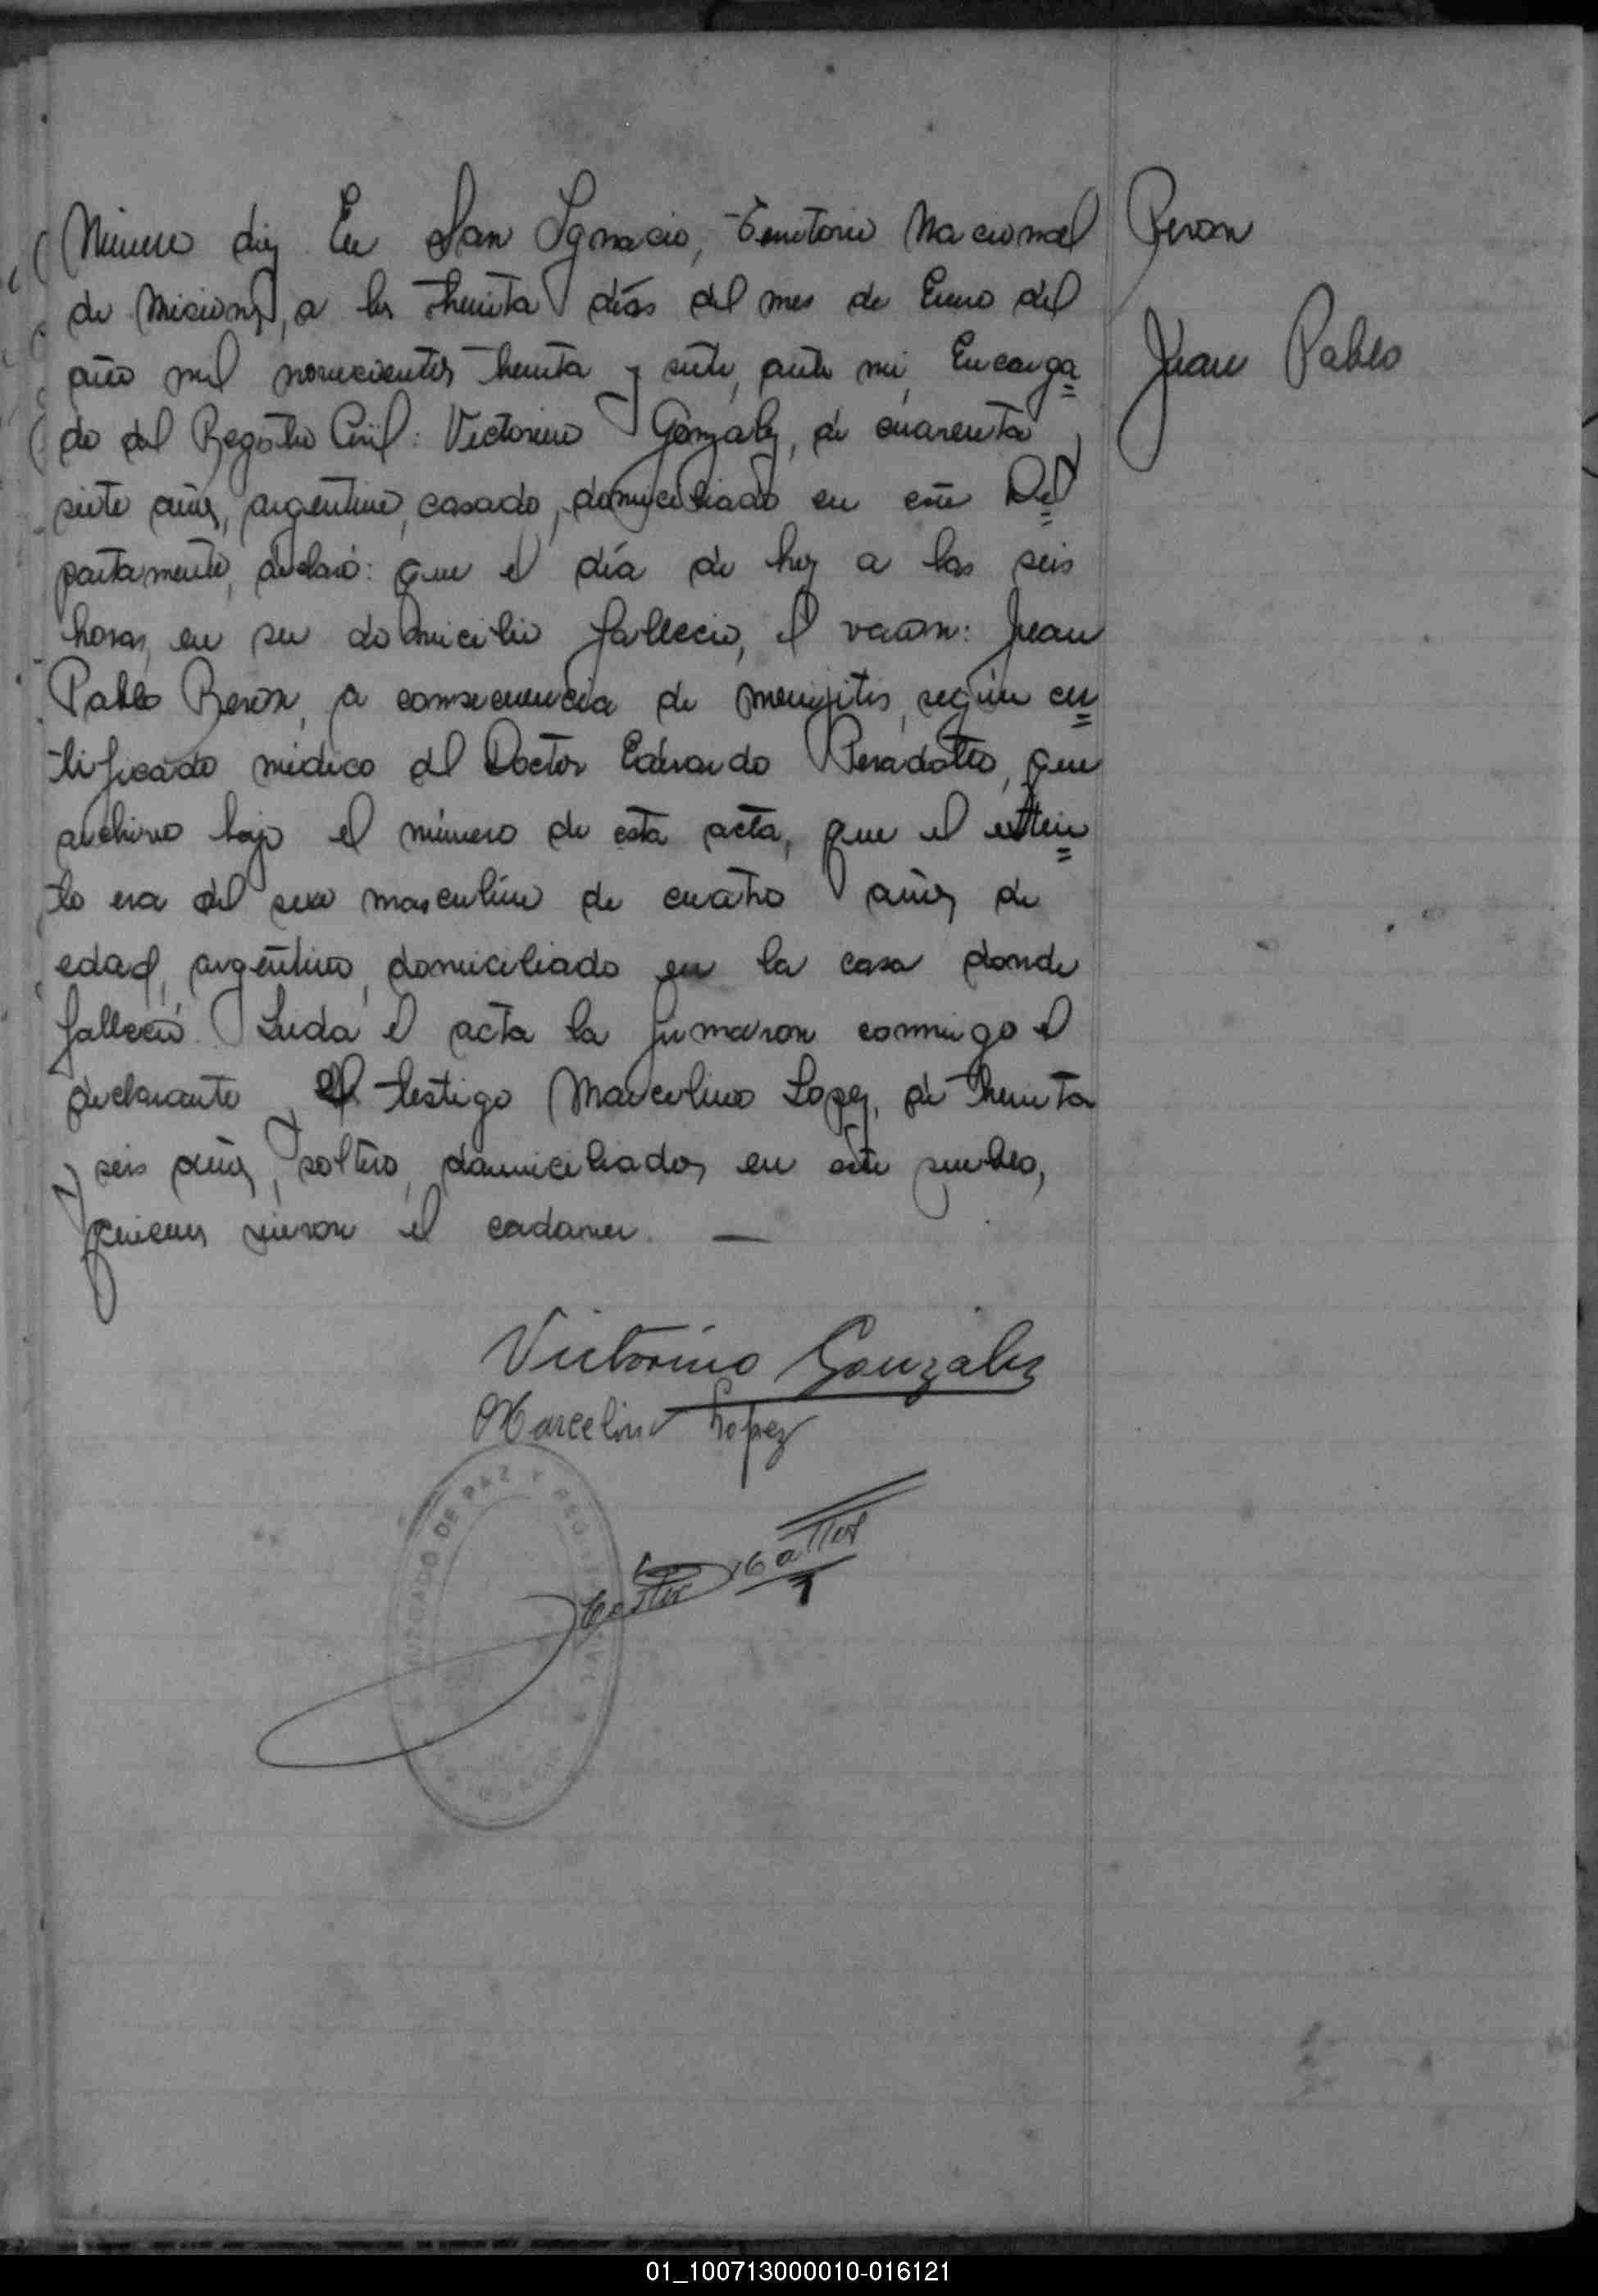 Número diez En San Ignacio, Territorio Nacional
de Misiones, a los treinta días del mes de Enero del
año mil novecientos treinta y siete, ante mi, Encarga=
do del Registro Civil: Victorino González, de cuarenta y
siete años, argentino, casado, domiciliado en este De=
partamento, declaró: que el día de hoy a las seis
horas, en su domicilio falleció, el varon: Juan
Pablo Beron, a consecuencia de meningitis, según cer=
tificado médico del Doctor Eduardo que
archivo bajo el número de esta acta, que el extin=
to era del sexo masculino de cuatro años de
edad, argentino, domiciliado en la casa donde
falleció. Leida el acta la firmaron conmigo el
declarante y el testigo Marcelino Lopez, de treinta
y seis años, soltero, domiciliados en este pueblo,
quienes vieron el cadaver. —
Victorino Gonzalez
Marcelino Lopez
JUZGADO DE PAZ Y
Beron
Juan Pablo
01_100713000010-016121